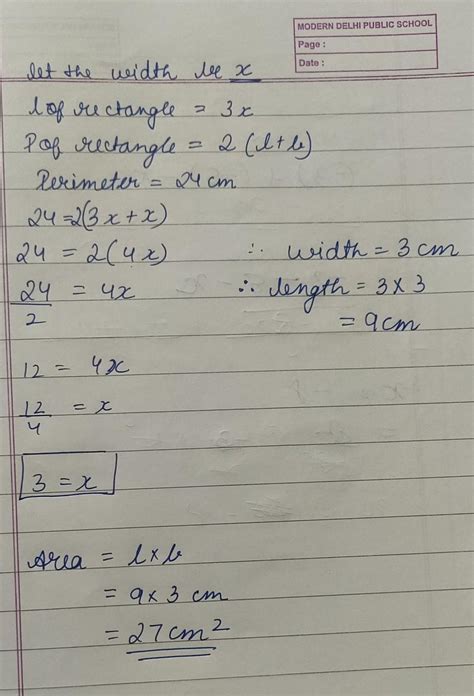 MODERN DELHI PUBLIC SCHOOL
Page :
Date :
let the width be x
l of rectangle = 3x
P of rectangle = 2 (l+b)
Perimeter = 24 cm
24=2(3x+x)
24 = 2(4x)
24/2 = 4x
12 = 4x
12/4 = x
3 = x
∴ width = 3 cm
∴ length = 3 x 3
= 9cm
Area = l x b
= 9 x 3 cm
= 27 cm²